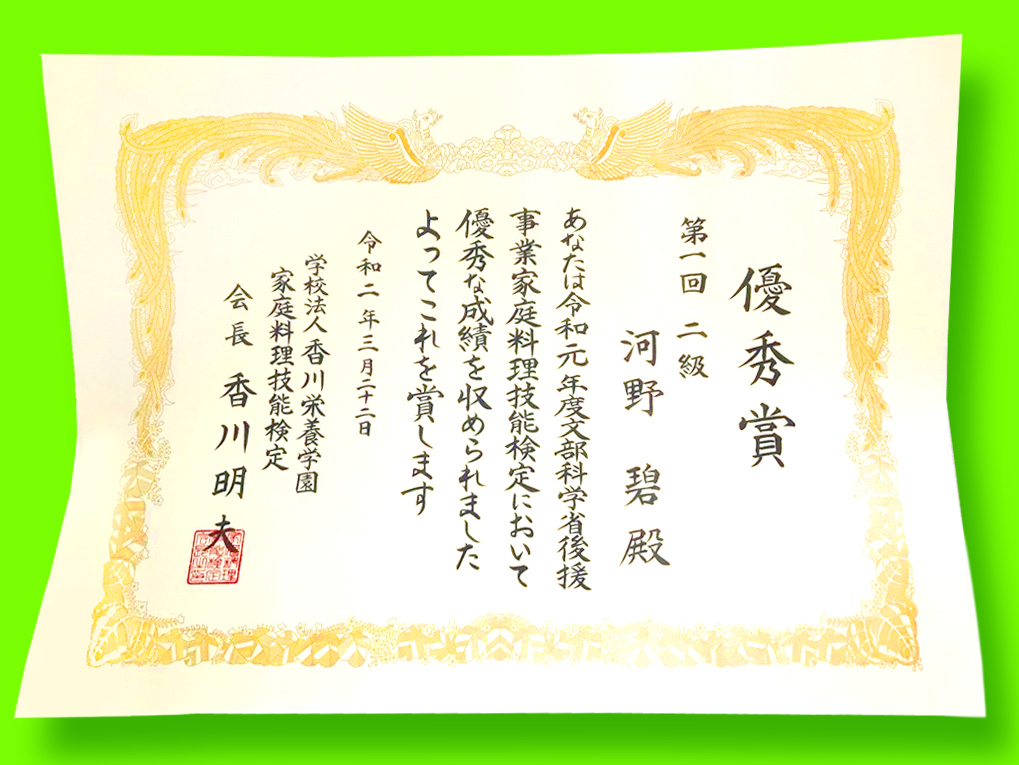 優秀賞
第一回 二級
河野 碧 殿
あなたは令和元年度文部科学省後援
事業家庭料理技能検定において
優秀な成績を収められました
よってこれを賞します
令和二年三月二十二日
学校法人香川栄養学園
家庭料理技能検定
会長 香川明夫